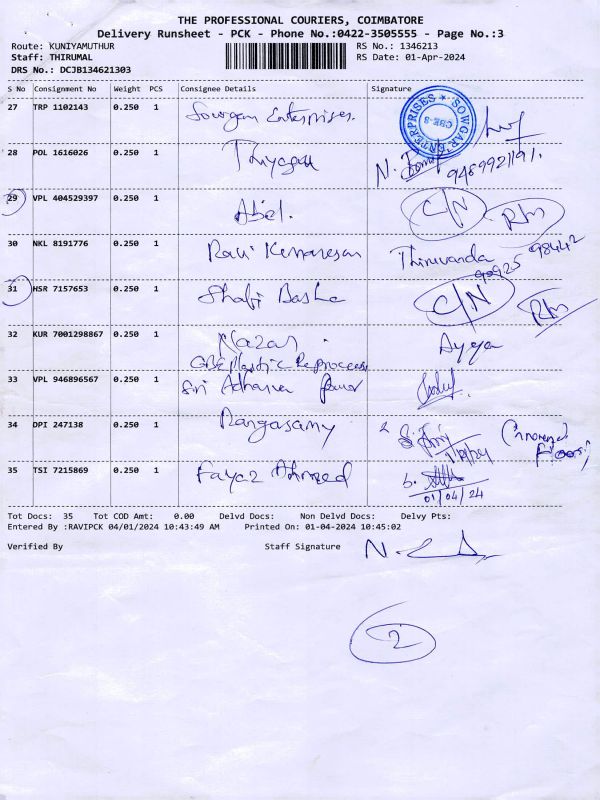 THE PROFESSIONAL COURIERS, COIMBATORE
Delivery Runsheet - PCK - Phone No.:0422-3505555 - Page No.:3
Route: KUNIYAMUTHUR RS No.: 1346213
Staff: THIRUMAL RS Date: 01-Apr-2024
DRS No.: DCJB134621303
S No Consignment No Weight PCS Consignee Details Signature
27 TRP 1102143 0.250 1 Sowgar Enterprises. SOWGAR ENTERPRISES CBE-8
28 POL 1616026 0.250 1 Thiyagu N.
29 VPL 404529397 0.250 1 Abel. C/N RM
30 NKL 8191776 0.250 1 Ravi Kumaresan Thiruvanda 98442
90925
31 HSR 7157653 0.250 1 Shafi Basha C/N RM
32 KUR 7001298867 0.250 1 Nazar Ayya
CBE Plastic Reprocess
33 VPL 946896567 0.250 1 Sri Adhavan Power
34 DPI 247138 0.250 1 Rangasamy (Ground
Floor)
35 TSI 7215869 0.250 1 Fayaz Ahmed
01/04/24
Tot Docs: 35 Tot COD Amt: 0.00 Delvd Docs: Non Delvd Docs: Delvy Pts:
Entered By :RAVIPCK 04/01/2024 10:43:49 AM Printed On: 01-04-2024 10:45:02
Verified By Staff Signature
2